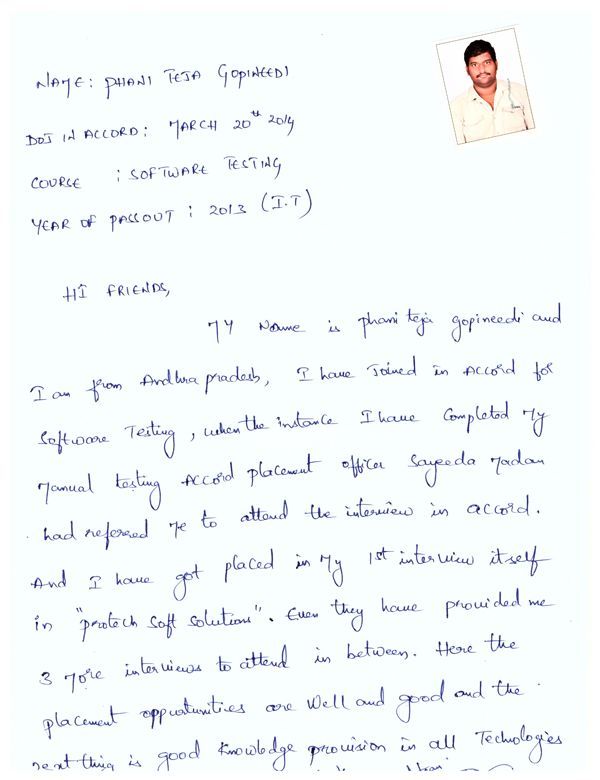 NAME: PHANI TEJA GOPINEEDI
DOJ IN ACCORD: MARCH 20th 2014
COURSE : SOFTWARE TESTING
YEAR OF PASSOUT : 2013 (I.T)
HI FRIENDS,
MY Name is phani teja gopineedi and
I am from Andhra pradesh, I have Joined in Accord for
Software Testing, when the instance I have Completed My
Manual testing Accord placement officer Sayeeda Madam
had refered Me to attend the interview in accord.
And I have got placed in My 1st interview itself
in "protech Soft Solutions". Even they have provided me
3 More interviews to attend in between. Here the
placement oppurtunities are Well and good and the
next thing is good Knowledge provision in all Technologies